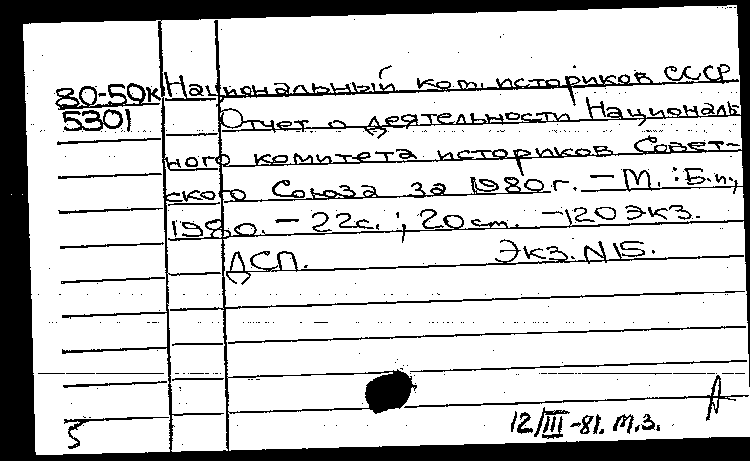 80-50к Национальный ком. историков СССР
5301 Отчет о деятельности Националь
ного комитета историков Совет-
ского Союза за 1980г. - М. : Б.и.,
1980. - 22с. ; 20см. - 120 экз.
ДСП. Экз. N15.
12/III-81. м.з.
5